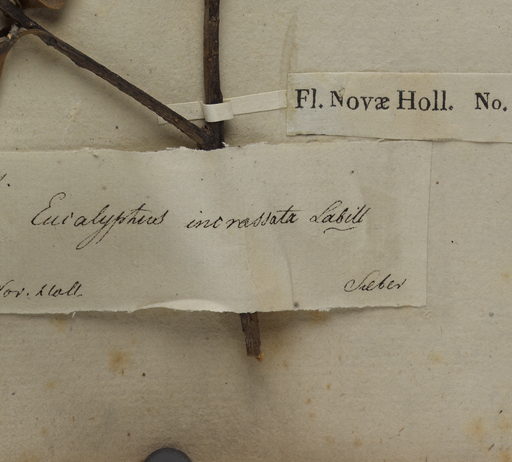 Fl. Novæ Holl. No.
Eucalyptus incrassata Labill
Nov. Holl.
Sieber